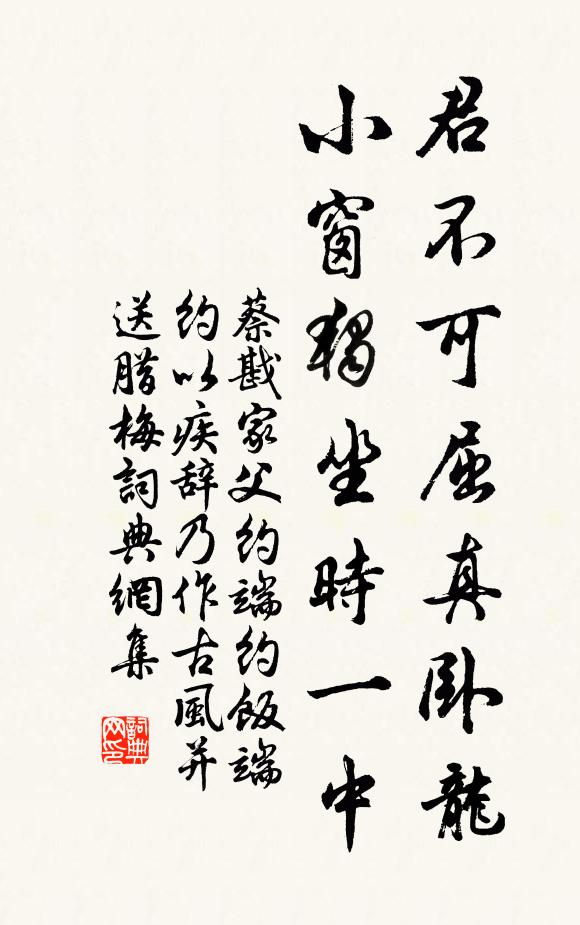 君不可屈真卧龍
小窗獨坐時一中
蔡戡家父約端約飯端
約以疾辞乃作古風并
送腊梅詞典網集
詞典网印